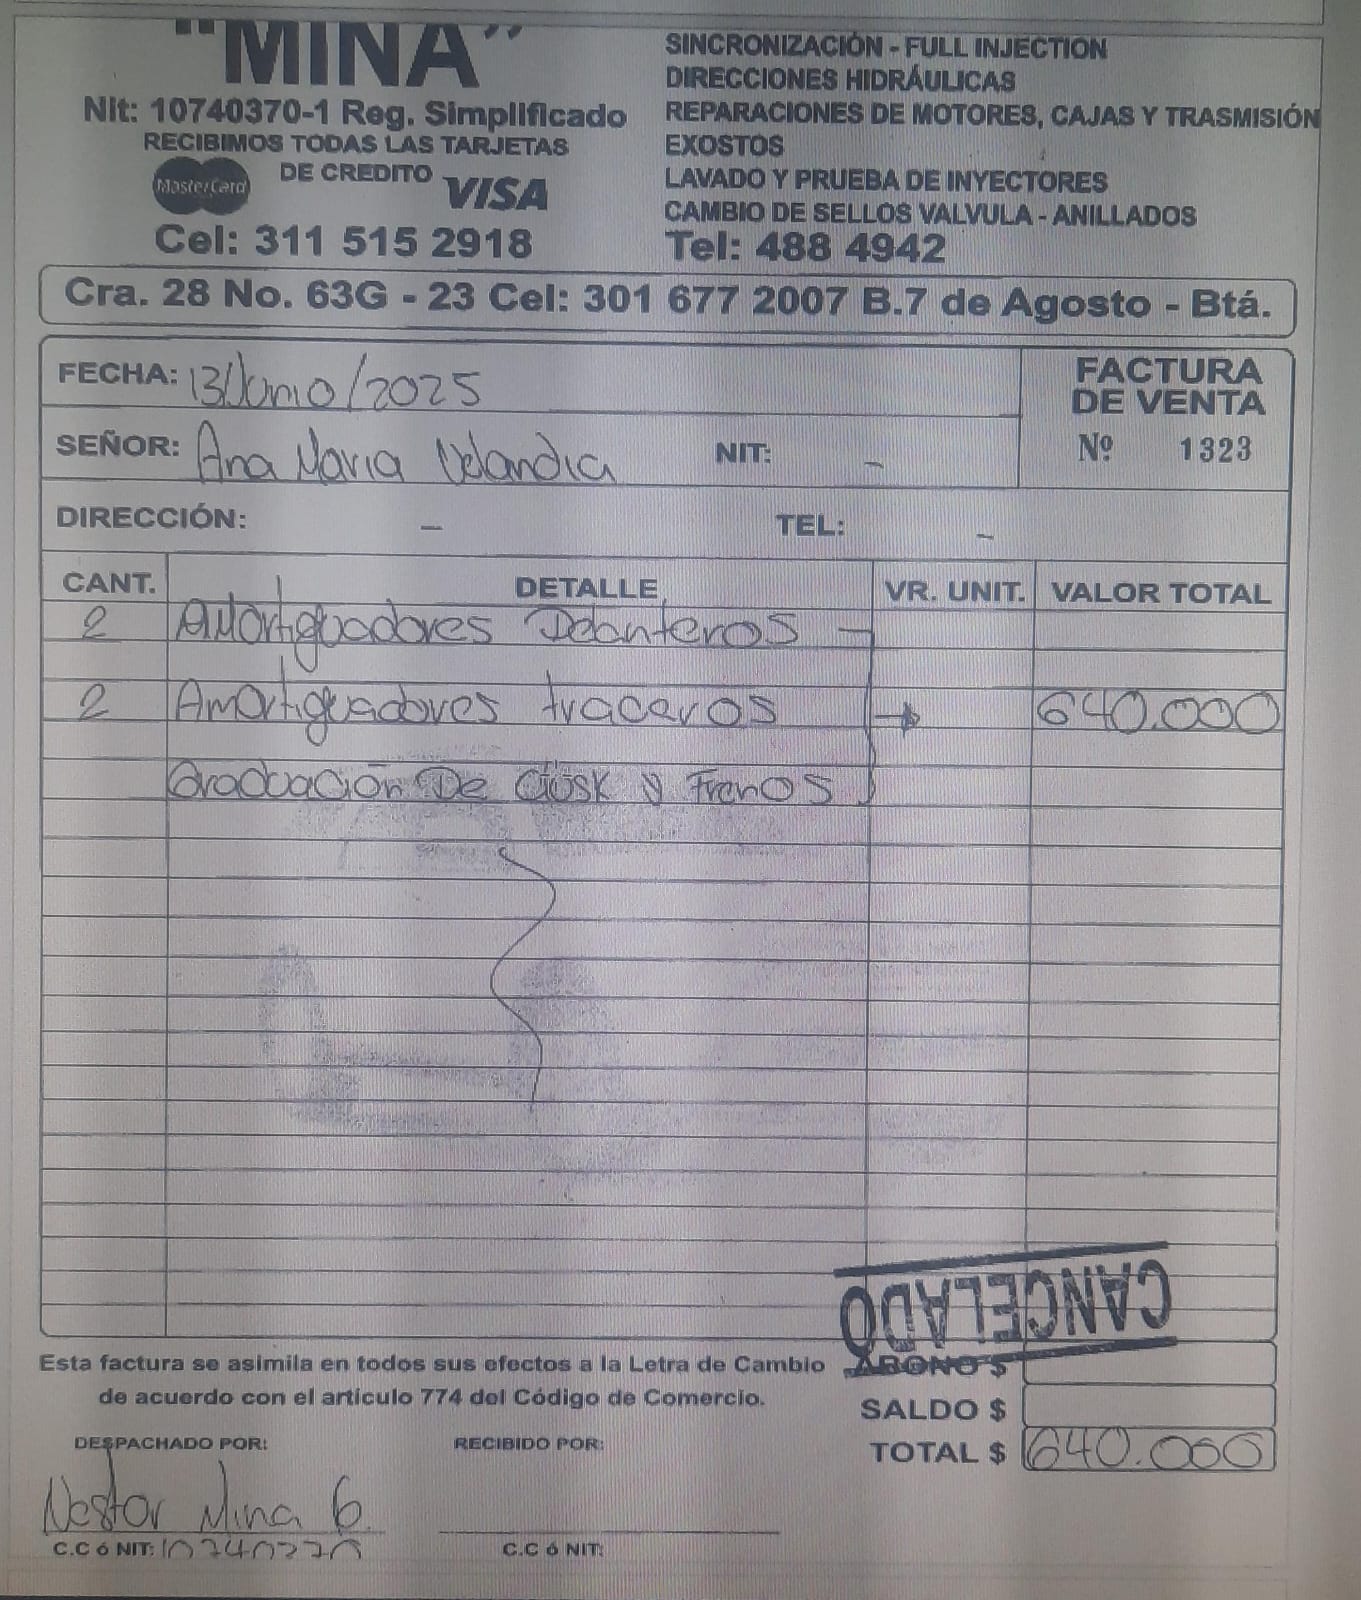 "MINA"
Nit: 10740370-1 Reg. Simplificado
RECIBIMOS TODAS LAS TARJETAS
DE CREDITO
MasterCard VISA
Cel: 311 515 2918
SINCRONIZACIÓN - FULL INJECTION
DIRECCIONES HIDRÁULICAS
REPARACIONES DE MOTORES, CAJAS Y TRASMISIÓN
EXOSTOS
LAVADO Y PRUEBA DE INYECTORES
CAMBIO DE SELLOS VALVULA - ANILLADOS
Tel: 488 4942
Cra. 28 No. 63G - 23 Cel: 301 677 2007 B.7 de Agosto - Btá.
FECHA: 13/Junio/2025
FACTURA
DE VENTA
Nº 1323
SEÑOR: Ana Maria Velandia NIT: -
DIRECCIÓN: - TEL: -
CANT. DETALLE VR. UNIT. VALOR TOTAL
2 Amortiguadores Delanteros
2 Amortiguadores traceros → 640.000
Graduación De y Frenos
CANCELADO
Esta factura se asimila en todos sus efectos a la Letra de Cambio
de acuerdo con el artículo 774 del Código de Comercio.
ABONO $
SALDO $
TOTAL $ 640.000
DESPACHADO POR: RECIBIDO POR:
Nestor Mina G.
C.C ó NIT: 10740370 C.C ó NIT: